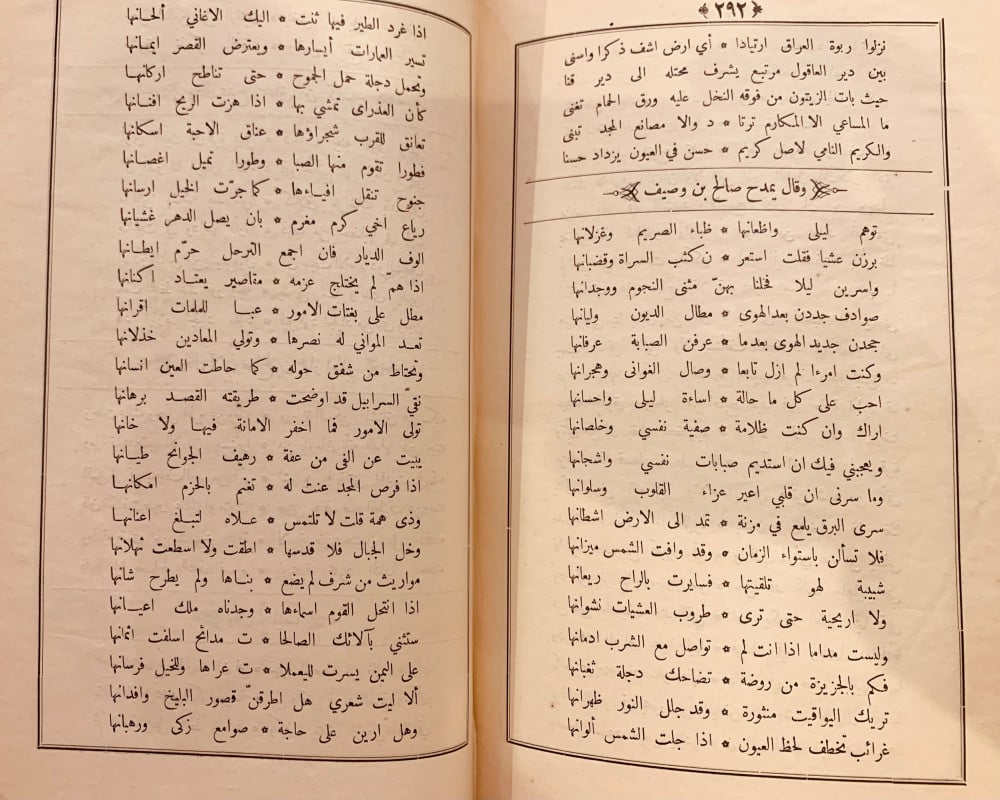 ﴿٢٩٢﴾
نزلوا ربوة العراق ارتيادا * أي ارض اشف ذكرا واسنى
بين دير العاقول مرتبع يشرف محتله الى دير قنا
حيث بات الزيتون من فوقه النخل عليه ورق الحمام تغنى
ما المساعي الا المكارم ترتا * د والا مصانع المجد تبنى
والكريم النامي لاصل كريم * حسن في العيون يزداد حسنا
وقال يمدح صالح بن وصيف
توهم ليلى واظعانها * ظباء الصريم وغزلانها
برزن عشيا فقلت استعر * ن كثب السراة وقضبانها
واسرين ليلا فخلنا بهنّ مثنى النجوم ووحدانها
صوادف جددن بعد الهوى * مطال الديون وليانها
جحدن جديد الهوى بعدما * عرفن الصبابة عرفانها
وكنت امرءا لم ازل تابعا * وصال الغوانى وهجرانها
احب على كل ما حالة * اساءة ليلى واحسانها
اراك وان كنت ظلامة * صفية نفسي وخلصانها
ويعجبني فيك ان استديم صبابات نفسي واشجانها
وما سرنى ان قلبي اعير عزاء القلوب وسلوانها
سرى البرق يلمع في مزنة * تمد الى الارض اشطانها
فلا تسألن باستواء الزمان * وقد وافت الشمس ميزانها
شبيبة لهو تلقيتها * فسايرت بالراح ريعانها
ولا اريحية حتى ترى * طروب العشيات نشوانها
وليست مداما اذا انت لم * تواصل مع الشرب ادمانها
فكم بالجزيرة من روضة * تضاحك دجلة ثغبانها
تريك اليواقيت منثورة * وقد جلل النور ظهرانها
غرائب تخطف لحظ العيون * اذا جلت الشمس ألوانها
اذا غرد الطير فيها ثنت * اليك الاغاني ألحانها
تسير العمارات أيسارها * ويعترض القصر ايمانها
وتحمل دجلة حمل الجموح * حتى تناطح اركانها
كأن العذراى تمشي بها * اذا هزت الريح افنانها
تعانق للقرب شجراؤها * عناق الاحبة اسكانها
فطورا تقوم منها الصبا * وطورا تميل اغصانها
جنوح تنقل افياءها * كما جرّت الخيل ارسانها
رباع اخي كرم مغرم * بان يصل الدهر غشيانها
الوف الديار فان اجمع الترحل حرّم ايطانها
اذا همّ لم يختلج عزمه * مقاصير يعتاد اكنانها
مطل على بغتات الامور * عبا للملمات اقرانها
تعد الموالي له نصرها * وتولي المعادين خذلانها
وتحتاط من شفق حوله * كما حاطت العين انسانها
نقيّ السرابيل قد اوضحت * طريقته القصد برهانها
تولى الامور فما اخفر الامانة فيها ولا خانها
يبيت عن الفى من عفة * رهيف الجوانح طيانها
اذا فرص المجد عنت له * تغنم بالحزم امكانها
وذى همة قلت لا تلتمس * علاه لتبلغ اعنانها
وخل الجبال فلا قدسها * اطقت ولا اسطعت ثهلانها
مواريث من شرف لم يضع * بناها ولم يطرح شانها
اذا انتحل القوم اسماءها * وجدناه ملك اعيانها
ستثني بآلائك الصالحا * ت مدائح اسلفت اثمانها
على اليمن يسرت لليعملا * ت عراها وللخيل فرسانها
ألا ليت شعري هل اطرقنّ قصور البليخ وافدانها
وهل ارين على حاجة * صوامع زكى ورهبانها